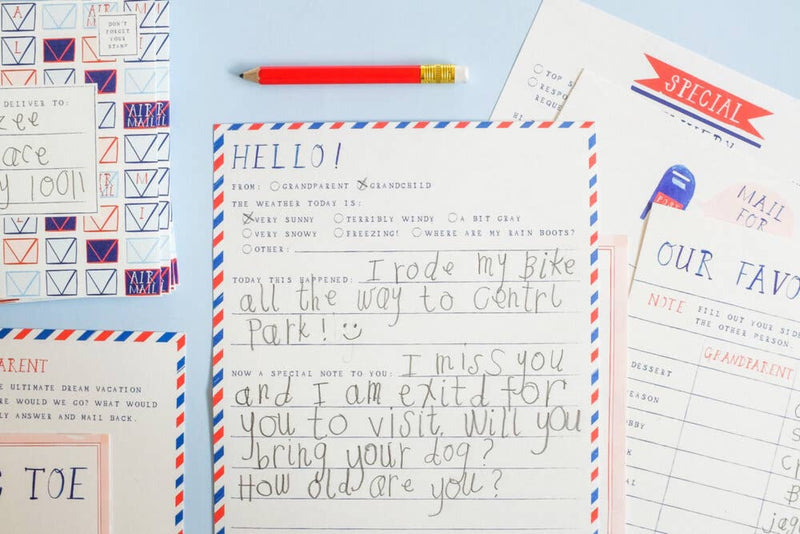 DON'T
FORGET
YOUR
STAMP
DELIVER TO:
zee
ace
y 10011
AIR
MAIL
AIR
MAIL
HELLO!
FROM: GRANDPARENT GRANDCHILD
THE WEATHER TODAY IS:
VERY SUNNY TERRIBLY WINDY A BIT GRAY
VERY SNOWY FREEZING! WHERE ARE MY RAIN BOOTS?
OTHER:
TODAY THIS HAPPENED: I rode my Bike
all the way to Centrl
Park!
NOW A SPECIAL NOTE TO YOU: I miss you
and I am exitd for
you to visit. Will you
bring your dog?
How old are you?
ARENT
E ULTIMATE DREAM VACATION
RE WOULD WE GO? WHAT WOULD
LY ANSWER AND MAIL BACK.
TOE
TOP S
RESPO
REQU
SPECIAL
MAIL
FOR
OUR FAVO
NOTE FILL OUT YOUR SIDE
THE OTHER PERSON.
GRANDPARENT
DESSERT
EASON
OBBY